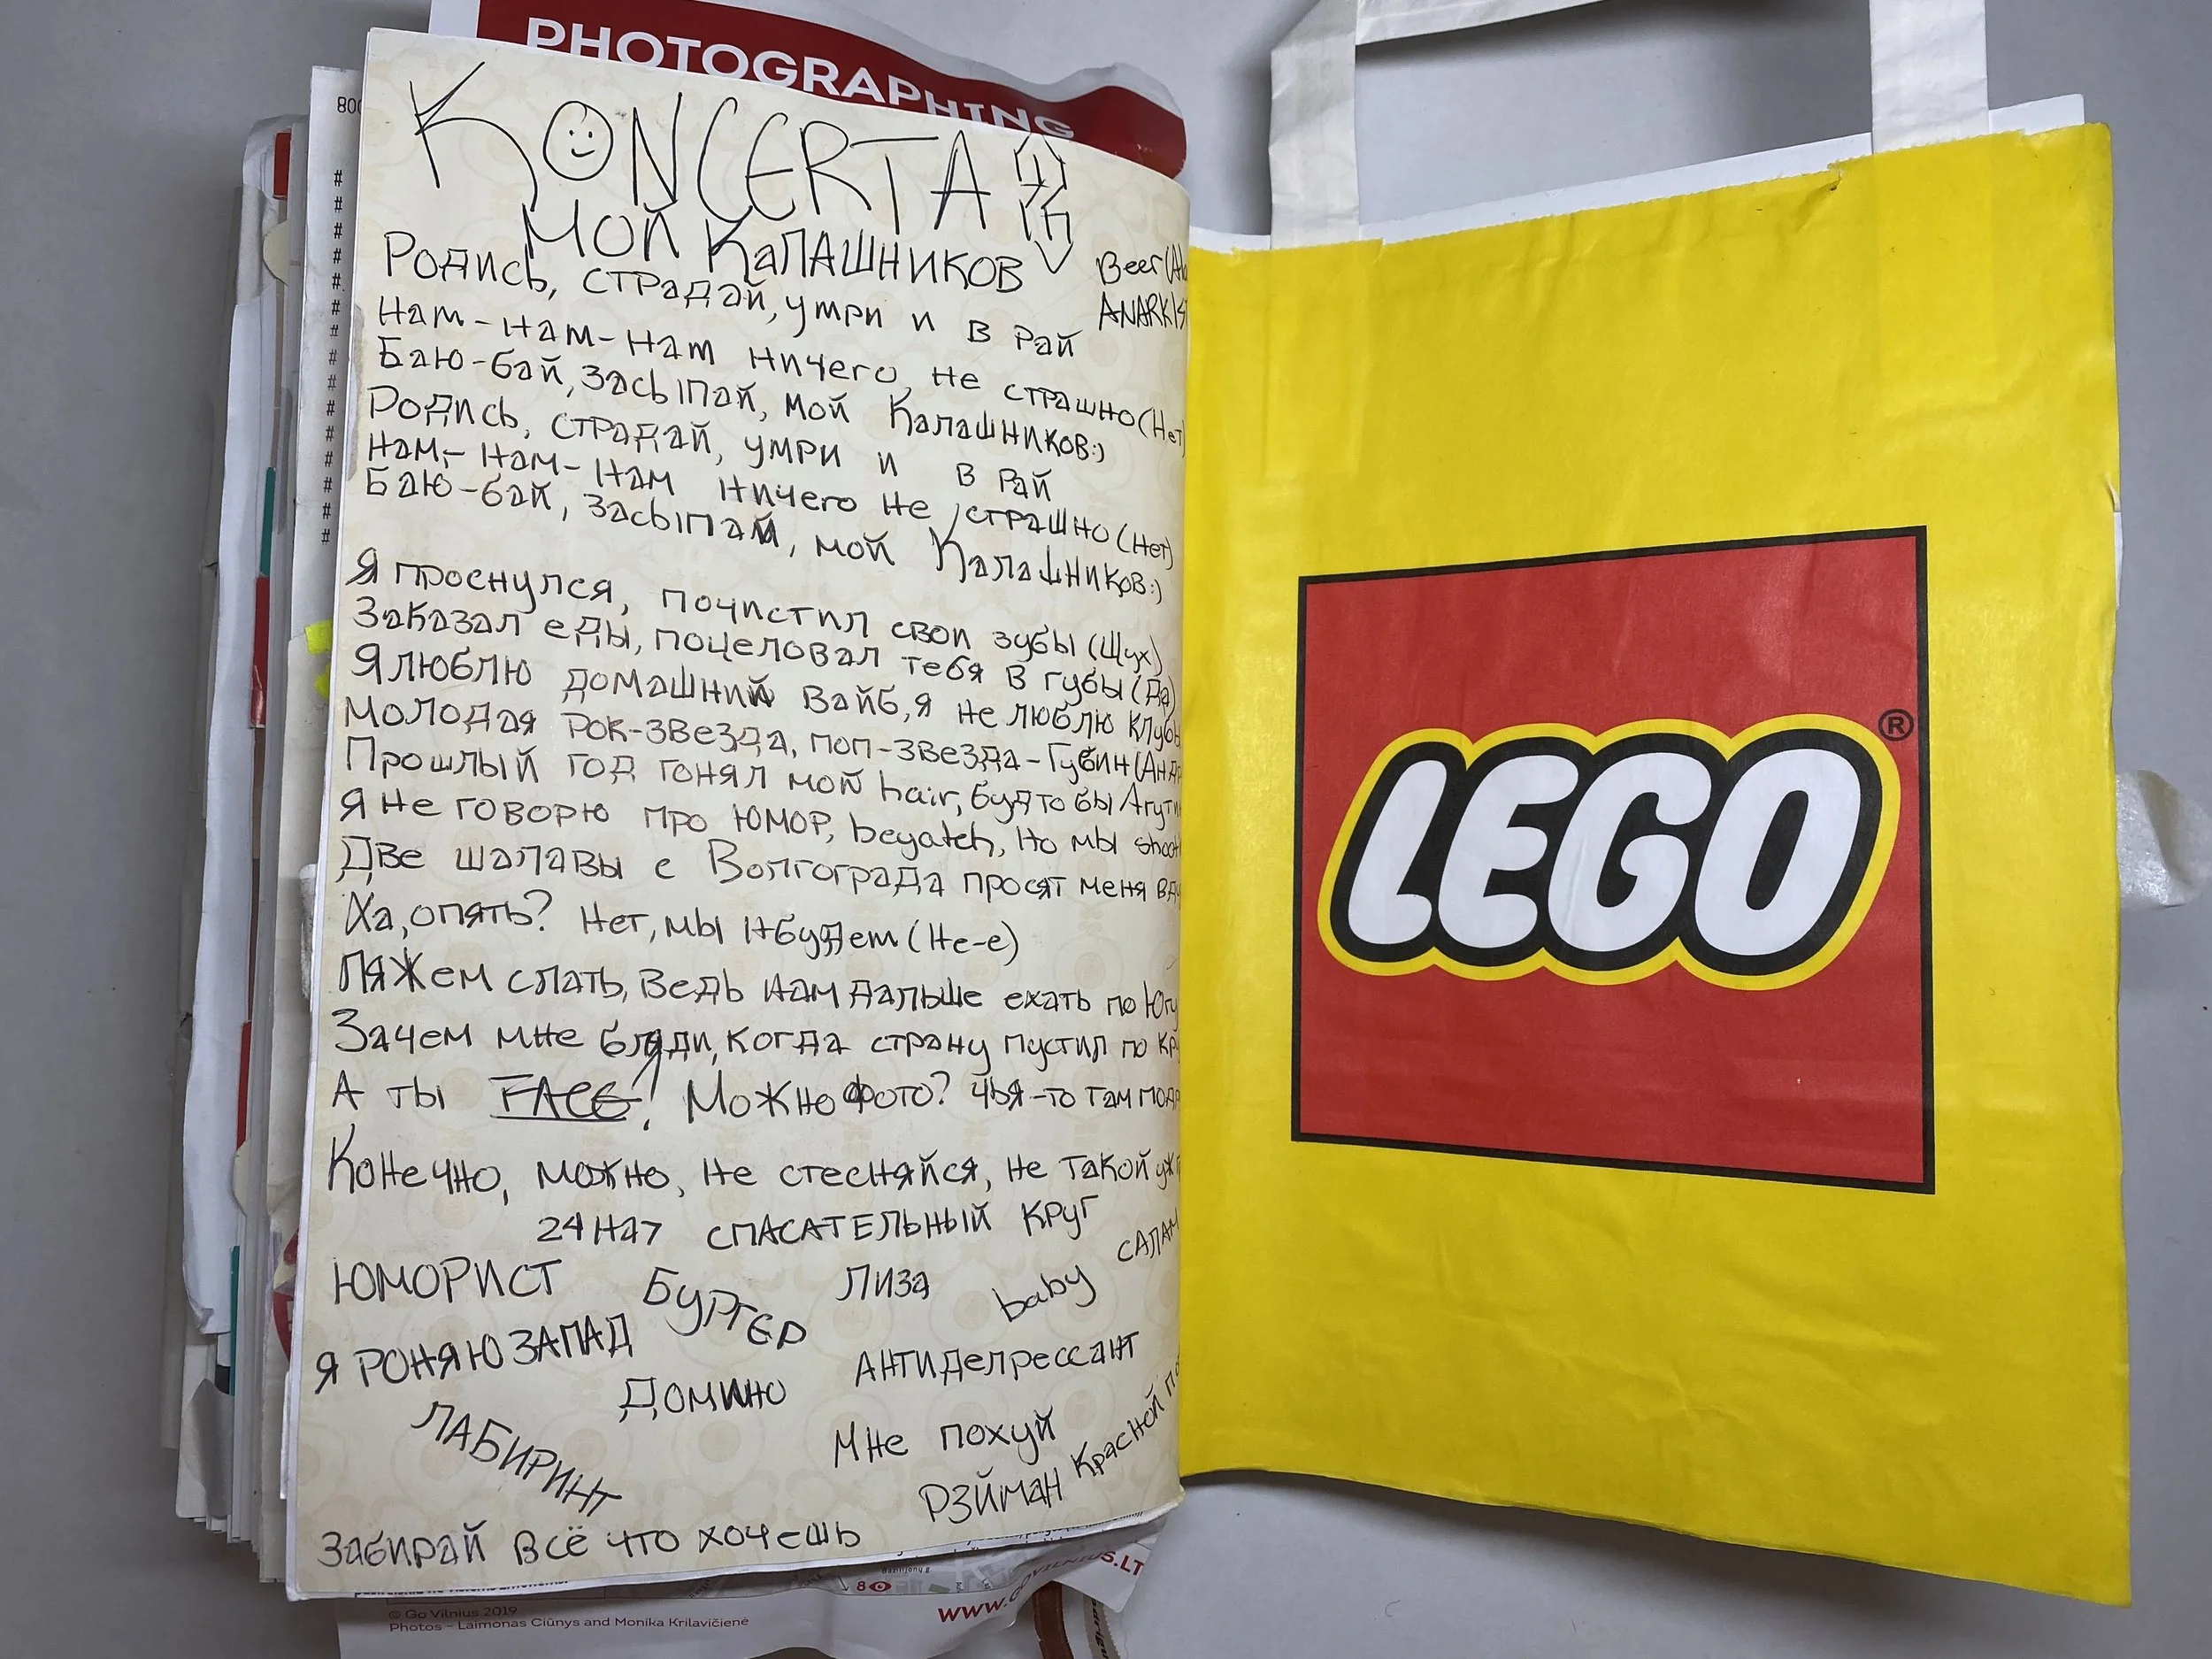 PHOTOGRAPHING
800
KONCERTA
МОЙ КАЛАШНИКОВ
Beer
Родись, страдай, умри и в рай
Нам-нам-нам ничего не страшно (Нет)
Баю-бай, засыпай, мой Калашников:)
Родись, страдай, умри и в рай
Нам-нам-нам ничего не страшно (Нет)
Баю-бай, засыпай, мой Калашников:)
Я проснулся, почистил свои зубы (Щух)
Заказал еды, поцеловал тебя в губы (Да)
Я люблю домашний вайб, я не люблю клубы
Молодая рок-звезда, поп-звезда-Губин
Прошлый год гонял мой hair, будто бы
Я не говорю про ЮМОР, beyatch, но мы
Две шалавы с Волгограда просят меня
Ха, опять? Нет, мы нбудем (Не-е)
Ляжем спать, ведь нам дальше ехать по Югу
Зачем мне бляди, когда страну пустил по
А ты FACE! Можно фото? Чья-то там
Конечно, можно, не стесняйся, не такой уж
24 на 7 СПАСАТЕЛЬНЫЙ КРУГ
ЮМОРИСТ Бургер Лиза baby САЛАМ
Я РОНЯЮ ЗАПАД АНТИДепрессант
Домино
ЛАБИРИНТ Мне похуй
РЭЙМАН Красной
Забирай всё что хочешь
LEGO®
8
WWW.GOVILNIUS.LT
© Go Vilnius 2019
Photos – Laimonas Ciūnys and Monika Krilavičienė